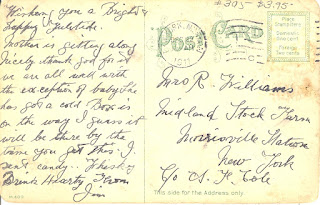 Wishing you a Bright &
Happy Yuletide
Mother is getting along
nicely thank God for it
we are all well with
the exception of baby she
has got a cold Box is
on the way I guess it
will be there by the
time you get this I
sent candy.. Whisky
Drink Hearty From
Jim
$3.95
POST CARD
1911
Place
Stamp Here
Domestic
One Cent
Foreign
Two Cents
Mrs R. Williams
Midland Stock Farm
Morrisville Station
New York
C/o S. F. Cole
This side for the Address only.